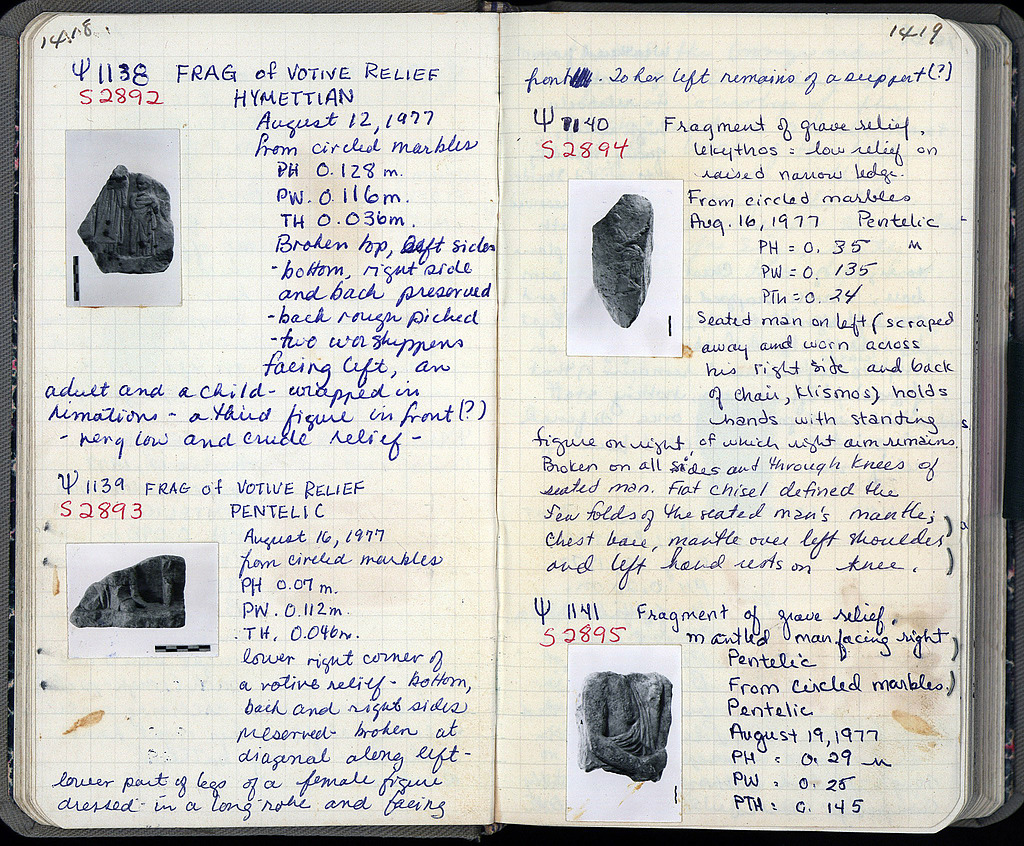 1418.
Ψ 1138 FRAG of VOTIVE RELIEF
S 2892 HYMETTIAN
August 12, 1977
from circled marbles
PH 0.128 m.
PW. 0.116m.
TH 0.036m.
Broken top, left sides
- bottom, right side
and back preserved
- back rough picked
- two worshippers
facing left, an
adult and a child - wrapped in
himations - a third figure in front (?)
- very low and crude relief -
Ψ 1139 FRAG of VOTIVE RELIEF
S 2893 PENTELIC
August 16, 1977
from circled marbles
PH 0.07 m.
PW. 0.112m.
TH. 0.046m.
lower right corner of
a votive relief - bottom,
back and right sides
preserved - broken at
diagonal along left -
lower part of legs of a female figure
dressed in a long robe and facing
1419
front. To her left remains of a support (?)
Ψ 1140 Fragment of grave relief.
S 2894 lekythos = low relief on
raised narrow ledge.
From circled marbles
Aug. 16, 1977 Pentelic
PH = 0. 35 m
PW = 0. 135
PTh = 0. 24
Seated man on left (scraped
away and worn across
his right side and back
of chair, klismos) holds
hands with standing
figure on right, of which right arm remains.
Broken on all sides and through knees of
seated man. Flat chisel defined the
few folds of the seated man's mantle;
chest bare, mantle over left shoulder
and left hand rests on knee.
Ψ 1141 Fragment of grave relief.
S 2895 mantled man facing right
Pentelic
From circled marbles.
Pentelic
August 19, 1977
PH = 0. 29 m
PW = 0. 25
PTH = 0. 145